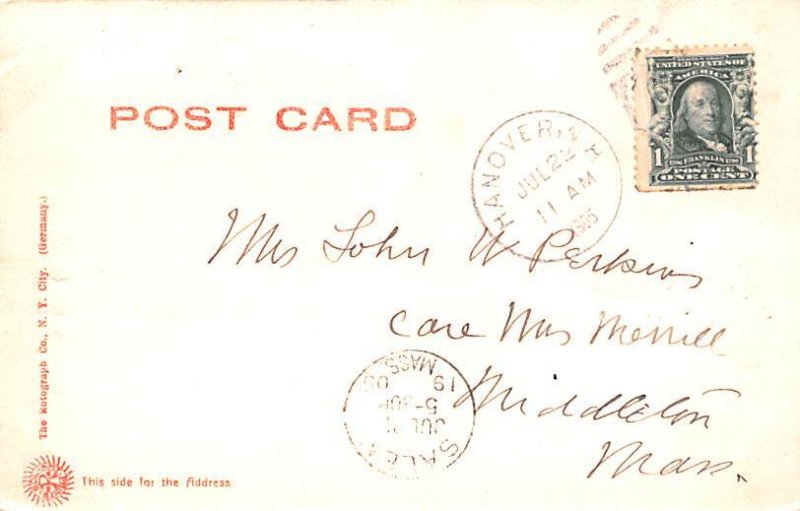 POST CARD
SERIES 1902
UNITED STATES OF
AMERICA
1 FRANKLIN 1
POSTAGE
ONE CENT
HANOVER, N.H
JUL 22
11 AM
1905
Mrs John W Perkins
Care Mrs Merrill
Middleton
Mass.
SALEM
JUL
5-30P
19 05
MASS.
The Rotograph Co., N. Y. City. (Germany.)
This side for the Address.